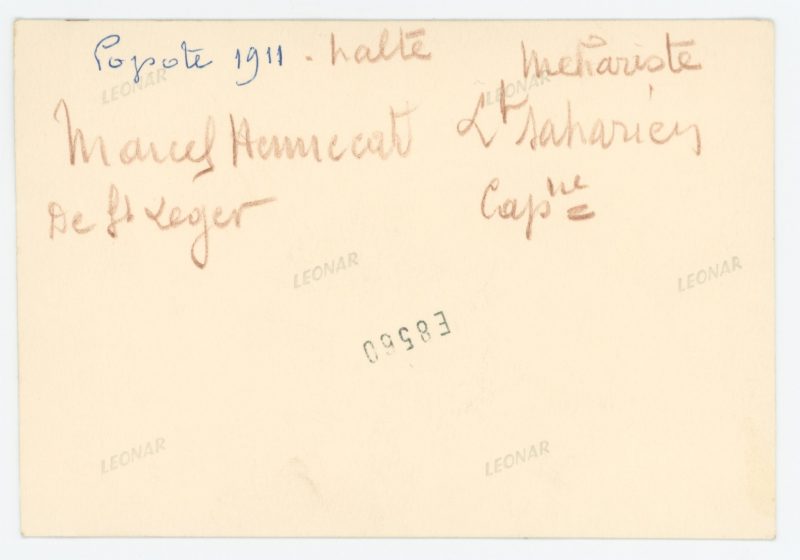 Popote 1911 - halte
Mehariste
LEONAR
LEONAR
Marcel Hennecart
Lt Saharien
De St Léger
Capne
LEONAR
LEONAR
E8560
LEONAR
LEONAR